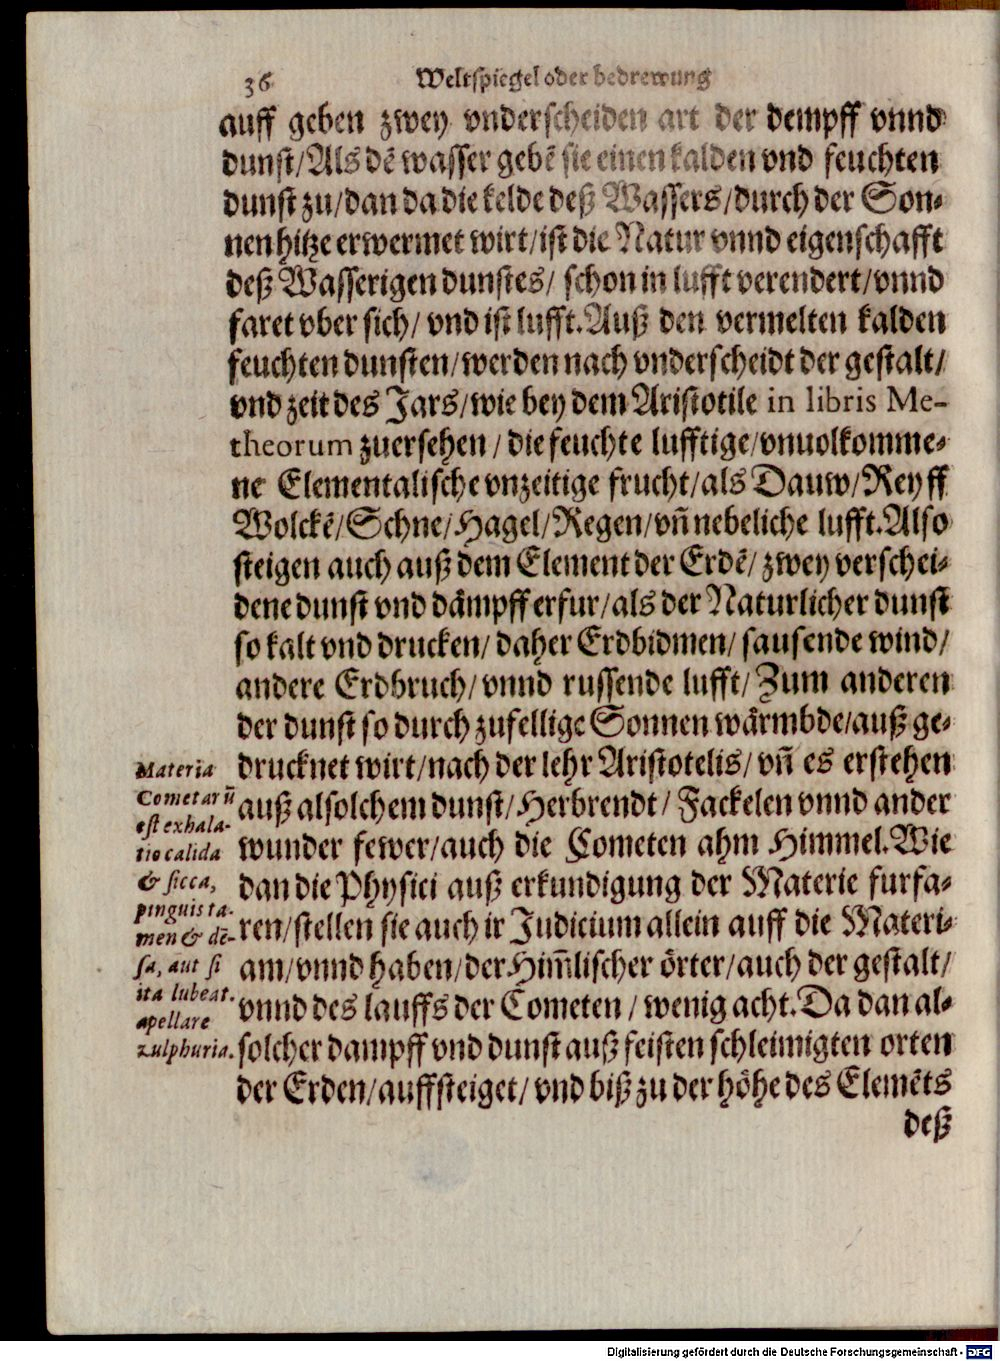 36 Weltspiegel oder bedrewung
auff geben zwey vnderscheiden art der dempff vnnd
dunst/Als dē wasser gebē sie einen kalden vnd feuchten
dunst zu/dan da die kelde deß Wassers/durch der Son-
nen hitze erwermet wirt/ist die Natur vnnd eigenschafft
deß Wasserigen dunstes/ schon in lufft verendert/vnnd
faret vber sich/ vnd ist lufft. Auß den vermelten kalden
feuchten dunsten/werden nach vnderscheidt der gestalt/
vnd zeit des Jars/wie bey dem Aristotile in libris Me-
theorum zuersehen/ die feuchte lufftige/vnuolkomme-
ne Elementalische vnzeitige frucht/als Dauw/Reyff
Wolckē/Schne/Hagel/Regen/vñ nebeliche lufft. Also
steigen auch auß dem Element der Erdē/ zwey verschei-
dene dunst vnd dämpff erfur/als der Naturlicher dunst
so kalt vnd drucken/ daher Erdbidmen/ sausende wind/
andere Erdbruch/vnnd russende lufft/ Zum anderen
der dunst so durch zufellige Sonnen wärmbde/auß ge-
drucknet wirt/nach der lehr Aristotelis/ vñ es erstehen
auß alsolchem dunst/Herbrendt/ Fackelen vnnd ander
wunder fewer/auch die Cometen ahm Himmel. Wie
dan die Physici auß erkundigung der Materie furfa-
ren/stellen sie auch ir Judicium allein auff die Materi-
am/vnnd haben/der Him̃lischer örter/auch der gestalt/
vnnd des lauffs der Cometen/ wenig acht. Da dan al-
solcher dampff vnd dunst auß feisten schleimigten orten
der Erden/auffsteiget/ vnd biß zu der höhe des Elemēts
deß
Materia
Cometarū
est exhala-
tio calida
& sicca,
pinguis ta-
men & dē-
sa, aut si
ita lubeat.
apellare
zulphuria.
Digitalisierung gefördert durch die Deutsche Forschungsgemeinschaft - DFG